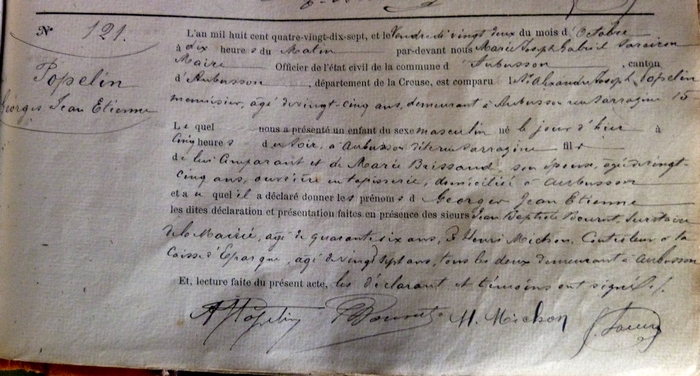 N° 121.
Popelin
Georges Jean Etienne
L'an mil huit cent quatre-vingt-dix-sept, et le Vendredi vingt deux du mois d'Octobre
à dix heures du Matin par-devant nous Marie Joseph Gabriel
Maire Officier de l'état civil de la commune d'Aubusson, canton
d'Aubusson, département de la Creuse, est comparu Alexandre Joseph Popelin
menuisier, agé de vingt-cinq ans, demeurant à Aubusson rue Sarrazine 15
Lequel nous a présenté un enfant du sexe masculin né le jour d'hier à
Cinq heures du soir, à Aubusson dite rue Sarrazine fils
de lui Comparant et de Marie Brissaud, son épouse, agée de vingt-
cinq ans, ouvrière en tapisserie, domiciliée à Aubusson
et auquel il a déclaré donner les prénoms de Georges Jean Etienne
les dites déclaration et présentation faites en présence des sieurs Jean Baptiste Bournet, Secrétaire
de la Mairie, agé de quarante six ans, & Henri Michon, Contrôleur à la
Caisse d'Epargne, agé de vingt sept ans, tous les deux demeurant à Aubusson
Et, lecture faite du présent acte, les déclarant et témoins ont signé.
A Popelin Bournet H. Michon